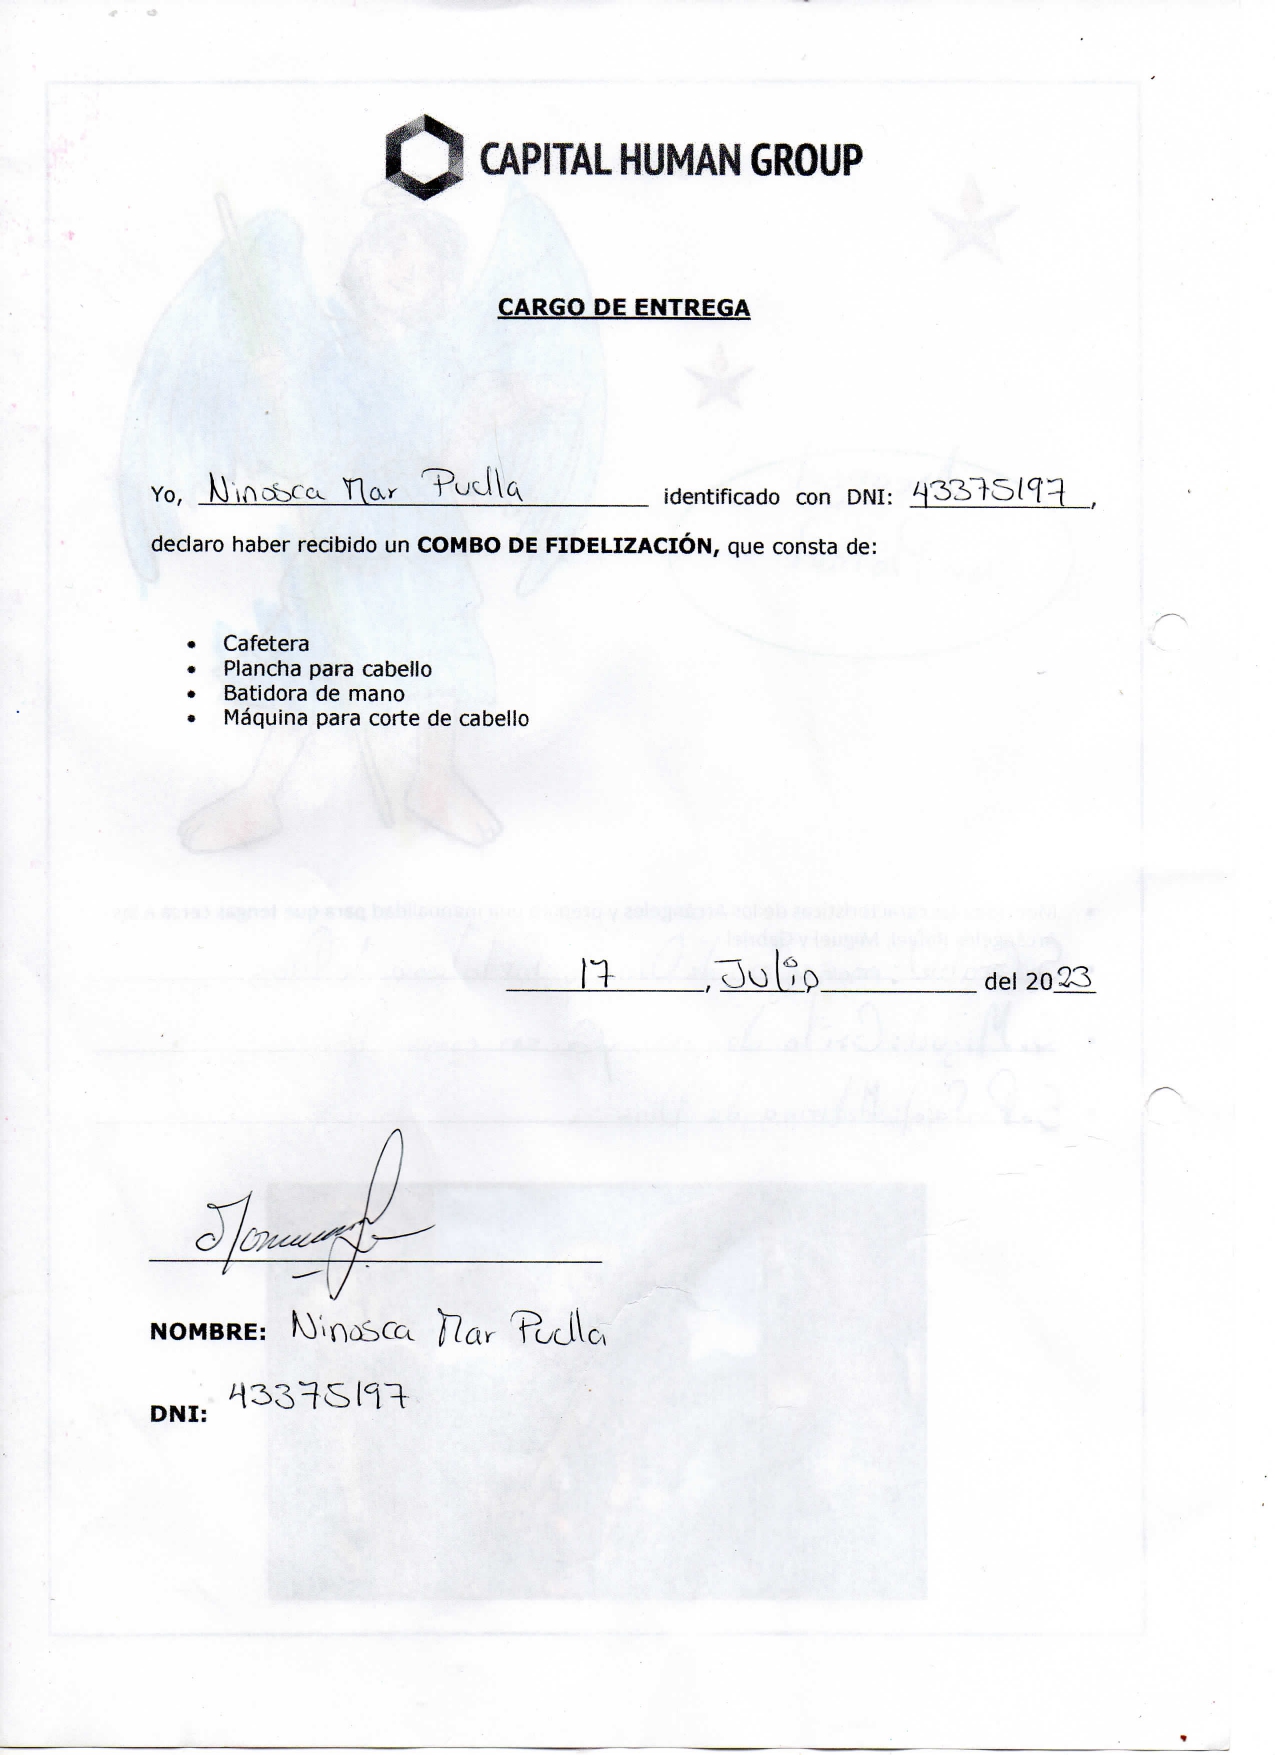 CAPITAL HUMAN GROUP
CARGO DE ENTREGA
Yo, Ninosca Mar Puclla identificado con DNI: 43375197,
declaro haber recibido un COMBO DE FIDELIZACIÓN, que consta de:
• Cafetera
• Plancha para cabello
• Batidora de mano
• Máquina para corte de cabello
17, Julio del 2023
NOMBRE: Ninosca Mar Puclla
DNI: 43375197